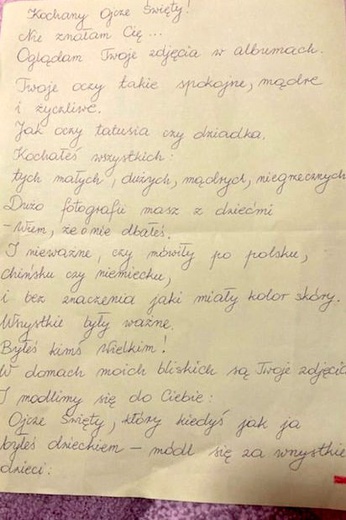 Kochany Ojcze Święty!
Nie znałam Cię...
Oglądam Twoje zdjęcia w albumach.
Twoje oczy takie spokojne, mądre
i życzliwe.
Jak oczy tatusia czy dziadka.
Kochałeś wszystkich:
tych małych, dużych, mądrych, niegrzecznych
Dużo fotografii masz z dziećmi
- Wiem, że o nie dbałeś.
I nieważne, czy mówiły po polsku,
chińsku czy niemiecku,
i bez znaczenia jaki miały kolor skóry.
Wszystkie były ważne.
Byłeś kimś Wielkim!
W domach moich bliskich są Twoje zdjęcia
I modlimy się do Ciebie:
Ojcze Święty, który kiedyś jak ja
byłeś dzieckiem – módl się za wszystkie
dzieci: